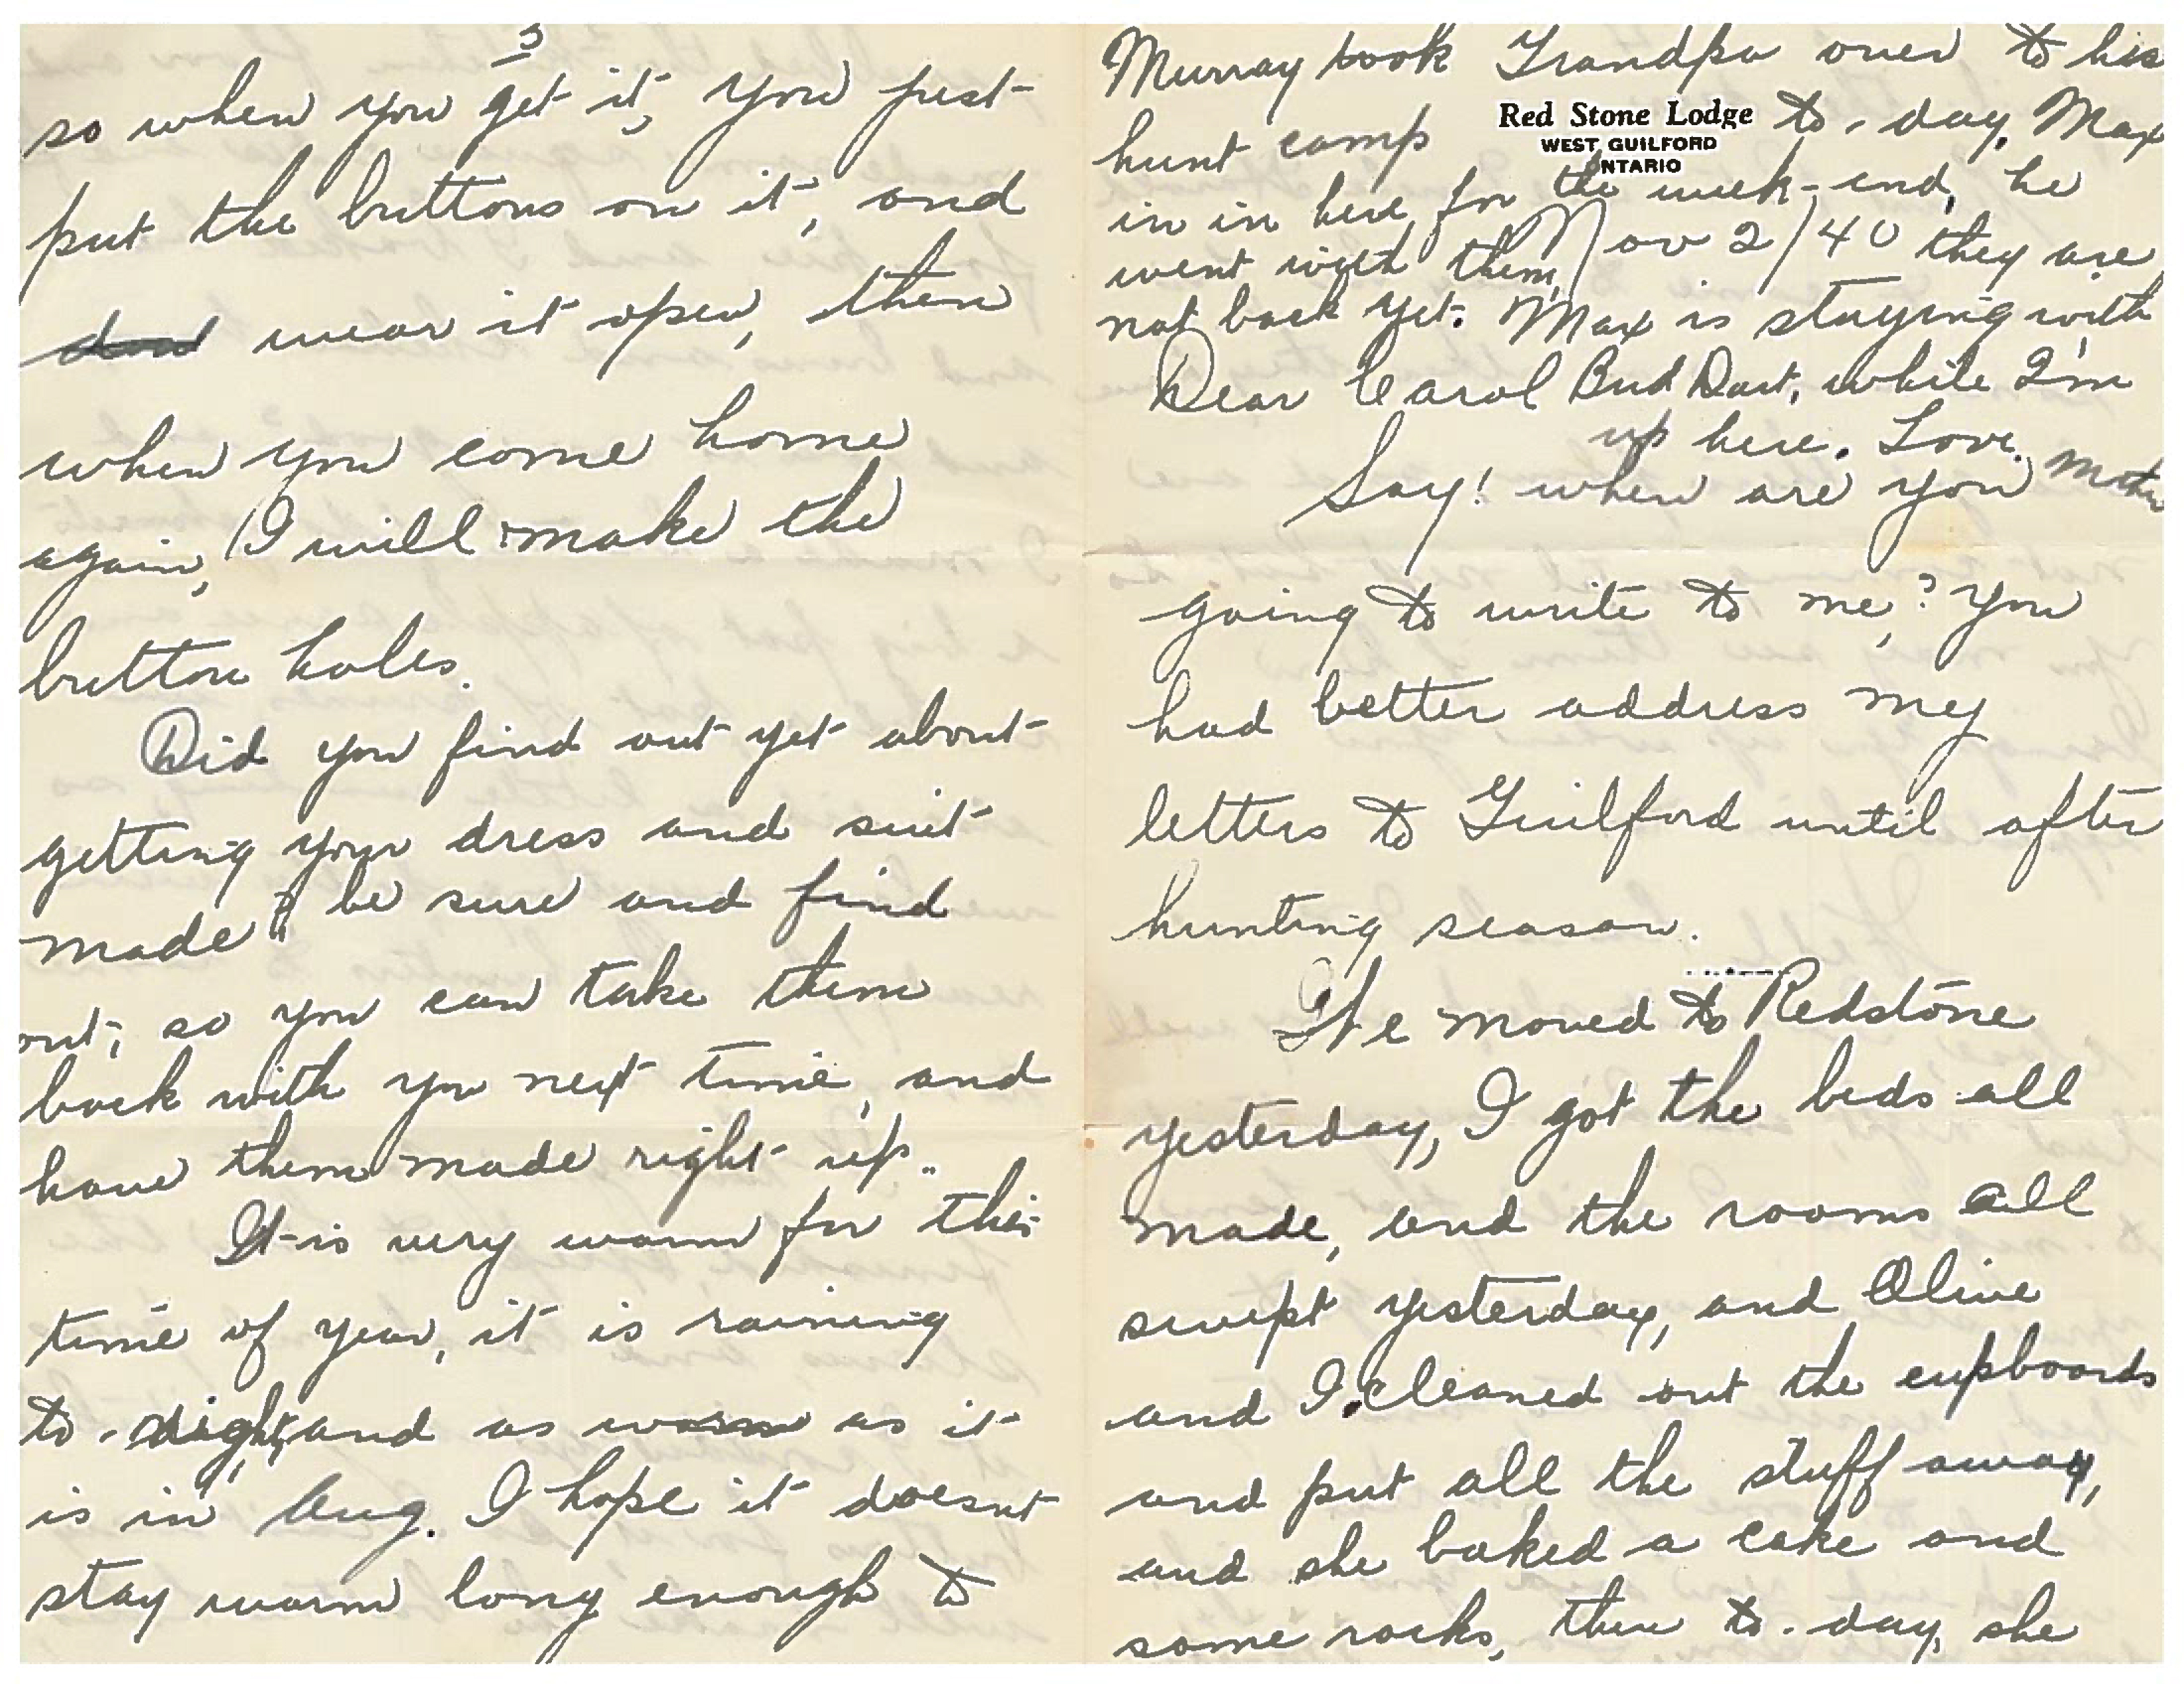 3
so when you get it, you just
put the buttons on it, and
wear it open, then
when you come home
again, I will make the
button holes.
Did you find out yet about
getting your dress and suit
made? be sure and find
out, so you can take them
back with you next time, and
have them made right up..
It is very warm for this
time of year, it is raining
to-night, and as warm as it
is in Aug. I hope it doesnt
stay warm long enough to
Murray took Grandpa over to his
hunt camp to-day. Max
Red Stone Lodge
WEST GUILFORD
ONTARIO
in in here for the week-end, he
went with them, they are
Nov 2/40
not back yet. Max is staying with
Bud Dart, while I'm
up here. Love. Mother
Dear Carol
Say! when are you
going to write to me? You
had better address my
letters to Guilford until after
hunting season.
We moved to Redstone
yesterday, I got the beds all
made, and the rooms all
swept yesterday, and Olive
and I cleaned out the cupboards
and put all the stuff away,
and she baked a cake and
some rocks, then to-day, she